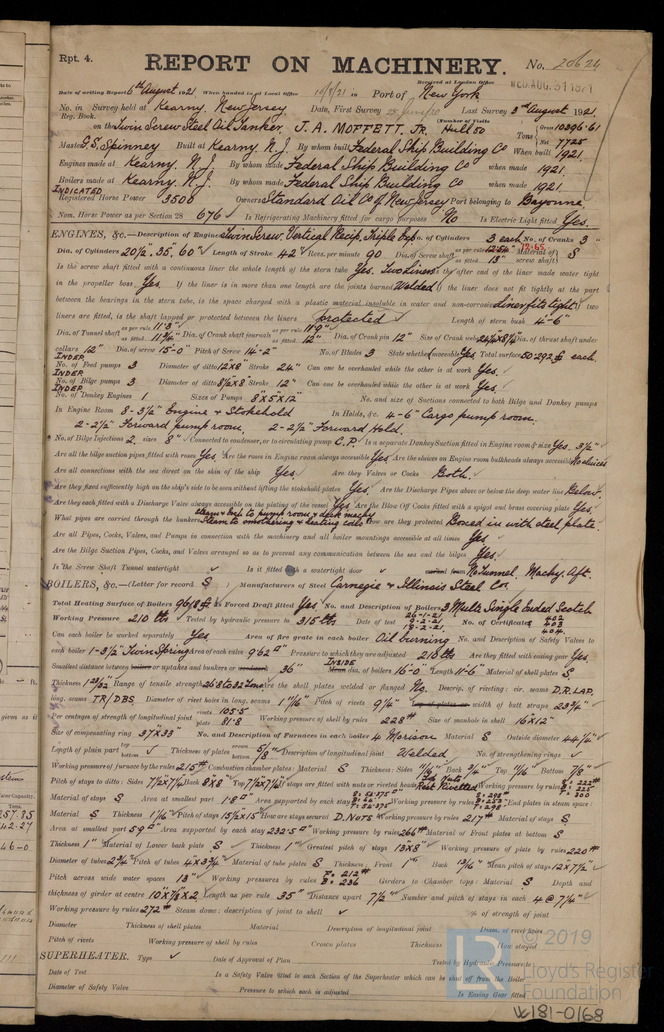 Rpt. 4.
REPORT ON MACHINERY.
No. 20624
Received at London Office
WED. AUG. 31 1921
Date of writing Report 6th August 1921 When handed in at Local Office 10/8/21 Port of New York
No. in Survey held at Kearny, New Jersey Date, First Survey Last Survey 3rd August 1921
Reg. Book. (Number of Visits
on the Twin Screw Steel Oil Tanker, J. A. MOFFETT, JR. Hull 50 Tons Gross 10396.61 Net 7725
Master G. S. Spinney Built at Kearny, N. J. By whom built Federal Ship Building Co When built 1921
Engines made at Kearny. N. J. By whom made Federal Ship Building Co when made 1921
Boilers made at Kearny. N. J. By whom made Federal Ship Building Co when made 1921
INDICATED
Registered Horse Power 3500 Owners Standard Oil Co of New Jersey Port belonging to Bayonne
Nom. Horse Power as per Section 28 676 Is Refrigerating Machinery fitted for cargo purposes No Is Electric Light fitted Yes.
ENGINES, &c.—Description of Engines Twin Screw, Vertical Recip. Triple Exp. No. of Cylinders 3 each No. of Cranks 3
Dia. of Cylinders 20½. 35. 60" Length of Stroke 42 Revs. per minute 90 Dia. of Screw shaft as per rule 12.65 as fitted 13" Material of screw shaft S
Is the screw shaft fitted with a continuous liner the whole length of the stern tube Yes. Two liners the after end of the liner made water tight
in the propeller boss Yes. If the liner is in more than one length are the joints burned Welded If the liner does not fit tightly at the part
between the bearings in the stern tube, is the space charged with a plastic material insoluble in water and non-corrosive liner fits tight If two
liners are fitted, is the shaft lapped or protected between the liners protected Length of stern bush 4-6"
Dia. of Tunnel shaft as per rule 11.3" as fitted 11¾" Dia. of Crank shaft journals as per rule 11.9" as fitted 12" Dia. of Crank pin 12" Size of Crank webs Dia. of thrust shaft under
collars 12" Dia. of screw 15-0" Pitch of Screw 14-2" No. of Blades 3 State whether moveable Yes Total surface 50.292 ft each.
INDEP.
No. of Feed pumps 3 Diameter of ditto 12x8 Stroke 24" Can one be overhauled while the other is at work Yes.
INDEP.
No. of Bilge pumps 3 Diameter of ditto 8½x8 Stroke 12" Can one be overhauled while the other is at work Yes.
INDEP.
No. of Donkey Engines 1 Sizes of Pumps 8"x5x12" No. and size of Suctions connected to both Bilge and Donkey pumps
In Engine Room 8-3½" Engine & Stokehold In Holds, &c. 4-6" Cargo pump room.
2-2½" Forward pump room, 2-2½" Forward Hold.
No. of Bilge Injections 2, sizes 8" Connected to condenser, or to circulating pump C.P. Is a separate Donkey Suction fitted in Engine room & size Yes. 3½"
Are all the bilge suction pipes fitted with roses Yes Are the roses in Engine room always accessible Yes Are the sluices on Engine room bulkheads always accessible No sluices
Are all connections with the sea direct on the skin of the ship Yes. Are they Valves or Cocks Both.
Are they fixed sufficiently high on the ship's side to be seen without lifting the stokehold plates Yes. Are the Discharge Pipes above or below the deep water line Below.
Are they each fitted with a Discharge Valve always accessible on the plating of the vessel Yes Are the Blow Off Cocks fitted with a spigot and brass covering plate Yes.
What pipes are carried through the bunkers steam & exh to pump room & deck machy Steam to smothering & heating coils How are they protected Boxed in with steel plate.
Are all Pipes, Cocks, Valves, and Pumps in connection with the machinery and all boiler mountings accessible at all times Yes
Are the Bilge Suction Pipes, Cocks, and Valves arranged so as to prevent any communication between the sea and the bilges Yes.
Is the Screw Shaft Tunnel watertight Is it fitted with a watertight door worked from No Tunnel. Machy. Aft.
BOILERS, &c.—(Letter for record S) Manufacturers of Steel Carnegie & Illinois Steel Cos.
Total Heating Surface of Boilers 9618 Is Forced Draft fitted Yes No. and Description of Boilers 3 Mult. Single Ended Scotch
Working Pressure 210 lbs Tested by hydraulic pressure to 315 lbs Date of test 26-1-21 9-2-21 19-2-21 No. of Certificate 402 403 404.
Can each boiler be worked separately Yes Area of fire grate in each boiler Oil burning No. and Description of Safety Valves to
each boiler 1-3½" Twin Spring Area of each valve 9.62 Pressure to which they are adjusted 210 lbs Are they fitted with easing gear Yes.
Smallest distance between boilers or uptakes and bunkers or woodwork 36" INSIDE Mean dia. of boilers 16-0" Length 11-6" Material of shell plates S
Thickness Range of tensile strength 26.8 to 32 Tons Are the shell plates welded or flanged No. Descrip. of riveting: cir. seams D.R. LAP.
long. seams TR/DBS Diameter of rivet holes in long. seams 1 7/16" Pitch of rivets 9½" Lap of plates or width of butt straps 23¾"
Per centages of strength of longitudinal joint rivets 105.5 plate 81.8 Working pressure of shell by rules 228 Size of manhole in shell 16x12"
Size of compensating ring 37"x33" No. and Description of Furnaces in each boiler 4 Morison Material S Outside diameter 44¼"
Length of plain part top bottom Thickness of plates crown bottom 5/8" Description of longitudinal joint Welded No. of strengthening rings
Working pressure of furnace by the rules 215 Combustion chamber plates: Material S Thickness: Sides 11/16" Back ¾" Top 11/16" Bottom 7/8"
Pitch of stays to ditto: Sides 7½x7¼ Back 8"x8" Top 7½x7¼ If stays are fitted with nuts or riveted heads Nuts Rest Riveted Working pressure by rules
Material of stays S Area at smallest part 1.8 Area supported by each stay Working pressure by rules End plates in steam space:
Material S Thickness 1 1/16" Pitch of stays 15½x15 How are stays secured D. NUTS. Working pressure by rules 217 Material of stays S
Area at smallest part 5.9 Area supported by each stay 232.5 Working pressure by rules 266 Material of Front plates at bottom S
Thickness 1" Material of Lower back plate S Thickness 1" Greatest pitch of stays 13"x8" Working pressure of plate by rules 220
Diameter of tubes 2¾" Pitch of tubes 4"x3¾" Material of tube plates S Thickness: Front 1" Back 13/16" Mean pitch of stays 12x7½"
Pitch across wide water spaces 13" Working pressures by rules F. 212 B. 236 Girders to Chamber tops: Material S Depth and
thickness of girder at centre 10"x7/8"x2 Length as per rule 35" Distance apart 7½" Number and pitch of stays in each 4 @ 7¼"
Working pressure by rules 272 Steam dome: description of joint to shell % of strength of joint
Diameter Thickness of shell plates Material Description of longitudinal joint Diam. of rivet holes
Pitch of rivets Working pressure of shell by rules Crown plates Thickness How stayed
SUPERHEATER. Type Date of Approval of Plan Tested by Hydraulic Pressure to
Date of Test Is a Safety Valve fitted to each Section of the Superheater which can be shut off from the Boiler
Diameter of Safety Valve Pressure to which each is adjusted Is Easing Gear fitted
© 2019
Lloyd's Register
Foundation
W181-0168